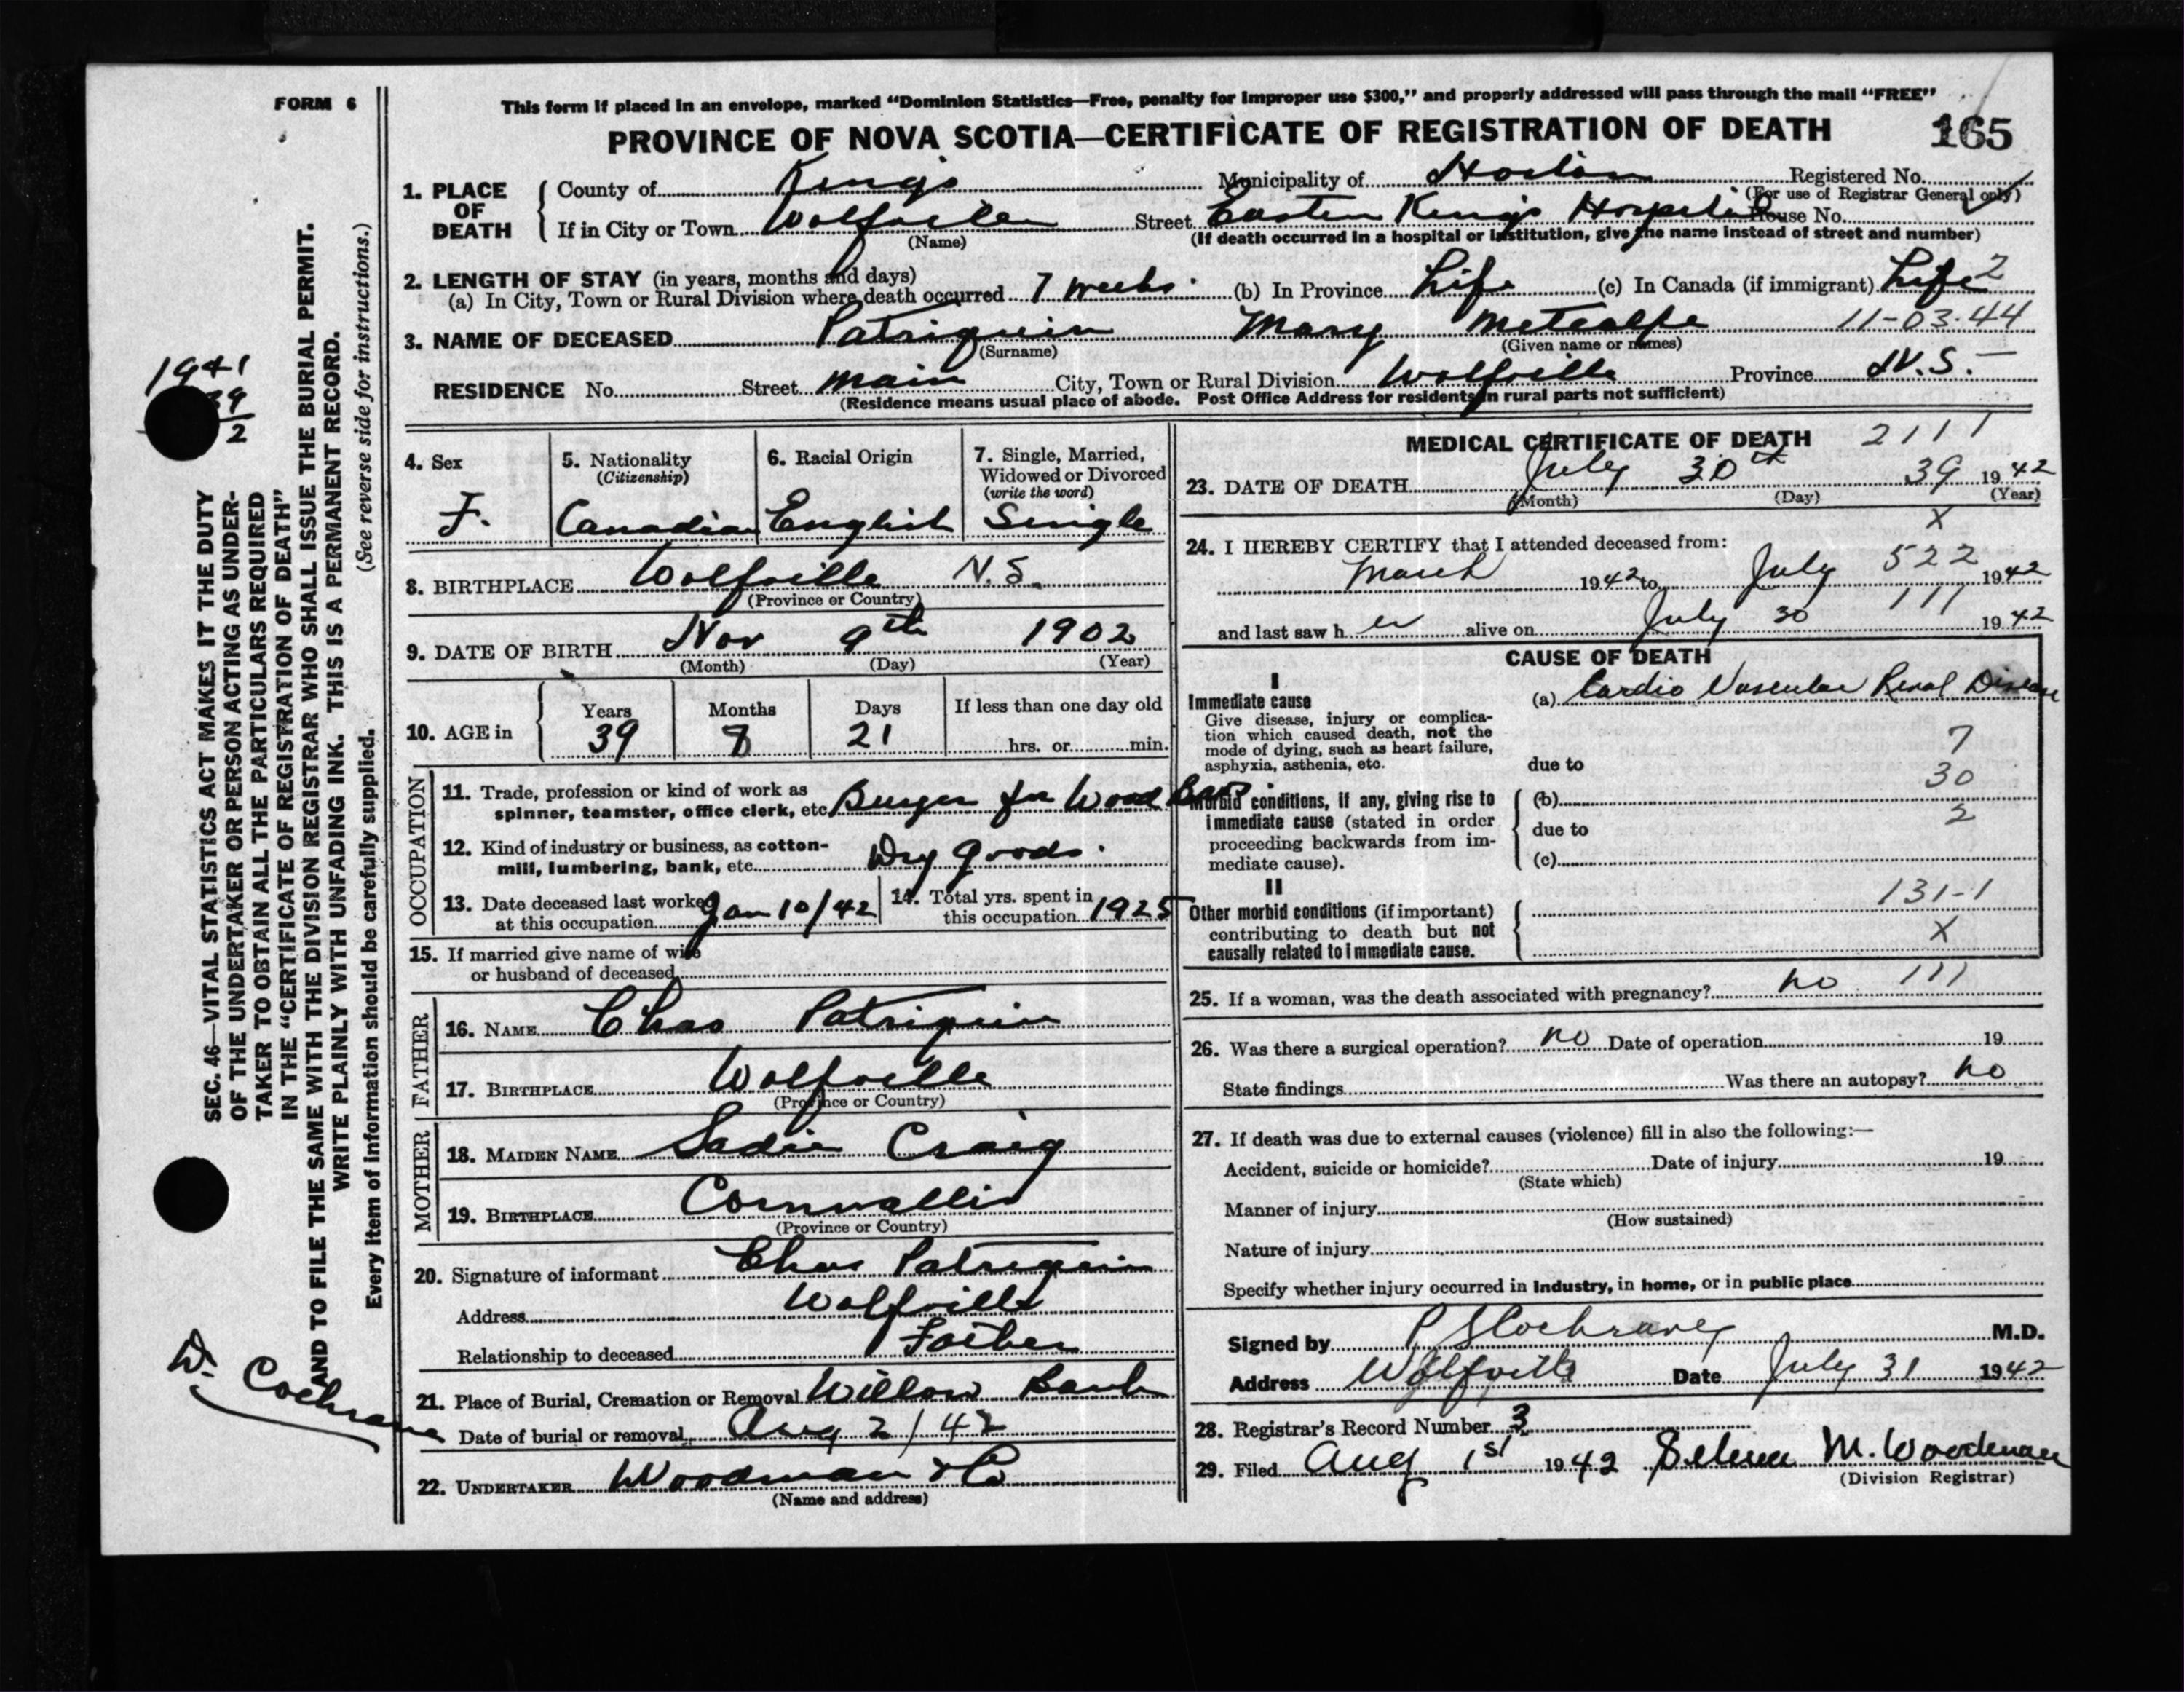 FORM 6
This form if placed in an envelope, marked “Dominion Statistics—Free, penalty for improper use $300,” and properly addressed will pass through the mail “FREE”
PROVINCE OF NOVA SCOTIA—CERTIFICATE OF REGISTRATION OF DEATH 165
1. PLACE OF DEATH
County of Kings Municipality of Horton Registered No.
(For use of Registrar General only)
If in City or Town Wolfville Street Eastern Kings Hospital House No.
(Name) (If death occurred in a hospital or institution, give the name instead of street and number)
2. LENGTH OF STAY (in years, months and days)
(a) In City, Town or Rural Division where death occurred 7 weeks (b) In Province Life (c) In Canada (if immigrant) Life 2
3. NAME OF DECEASED Patriquin Mary Metcalfe 11-03-44
(Surname) (Given name or names)
RESIDENCE No. Street Main City, Town or Rural Division Wolfville Province N.S. —
(Residence means usual place of abode. Post Office Address for residents in rural parts not sufficient)
4. Sex
F.
5. Nationality
(Citizenship)
Canadian
6. Racial Origin
English
7. Single, Married,
Widowed or Divorced
(write the word)
Single
8. BIRTHPLACE Wolfville N.S.
(Province or Country)
9. DATE OF BIRTH Nov 9th 1902
(Month) (Day) (Year)
10. AGE in
Years Months Days If less than one day old
39 8 21 hrs. or min.
OCCUPATION
11. Trade, profession or kind of work as
spinner, teamster, office clerk, etc. Buyer for Wood Bros.
12. Kind of industry or business, as cotton-
mill, lumbering, bank, etc. Dry goods.
13. Date deceased last worked
at this occupation Jan 10/42
14. Total yrs. spent in
this occupation 1925
15. If married give name of wife
or husband of deceased
FATHER
16. NAME Chas Patriquin
17. BIRTHPLACE Wolfville
(Province or Country)
MOTHER
18. MAIDEN NAME Sadie Craig
19. BIRTHPLACE Cornwallis
(Province or Country)
20. Signature of informant Chas Patriquin
Address Wolfville
Relationship to deceased Father
21. Place of Burial, Cremation or Removal Willow Bank
Date of burial or removal Aug 2/42
22. UNDERTAKER Woodman & Co
(Name and address)
MEDICAL CERTIFICATE OF DEATH 2111
23. DATE OF DEATH July 30th 39 1942
(Month) (Day) (Year)
X
24. I HEREBY CERTIFY that I attended deceased from:
March 1942 to July 522 1942
and last saw her alive on July 30 111 1942
CAUSE OF DEATH
I
Immediate cause
Give disease, injury or complica-
tion which caused death, not the
mode of dying, such as heart failure,
asphyxia, asthenia, etc.
(a) Cardio Vascular Renal Disease
7
due to
30
Morbid conditions, if any, giving rise to
immediate cause (stated in order
proceeding backwards from im-
mediate cause).
(b)
2
due to
(c)
II
Other morbid conditions (if important)
contributing to death but not
causally related to immediate cause.
131-1
X
25. If a woman, was the death associated with pregnancy? no 111
26. Was there a surgical operation? no Date of operation 19
State findings Was there an autopsy? no
27. If death was due to external causes (violence) fill in also the following:—
Accident, suicide or homicide? Date of injury 19
(State which)
Manner of injury
(How sustained)
Nature of injury
Specify whether injury occurred in industry, in home, or in public place
Signed by P S Cochrane M.D.
Address Wolfville Date July 31 1942
28. Registrar's Record Number 3
29. Filed Aug 1st 1942 Selena M. Woodman
(Division Registrar)
SEC. 46—VITAL STATISTICS ACT MAKES IT THE DUTY
OF THE UNDERTAKER OR PERSON ACTING AS UNDER-
TAKER TO OBTAIN ALL THE PARTICULARS REQUIRED
IN THE “CERTIFICATE OF REGISTRATION OF DEATH”
AND TO FILE THE SAME WITH THE DIVISION REGISTRAR WHO SHALL ISSUE THE BURIAL PERMIT.
WRITE PLAINLY WITH UNFADING INK. THIS IS A PERMANENT RECORD.
(See reverse side for instructions.)
Every item of information should be carefully supplied.
1941
39
2
Dr. Cochrane